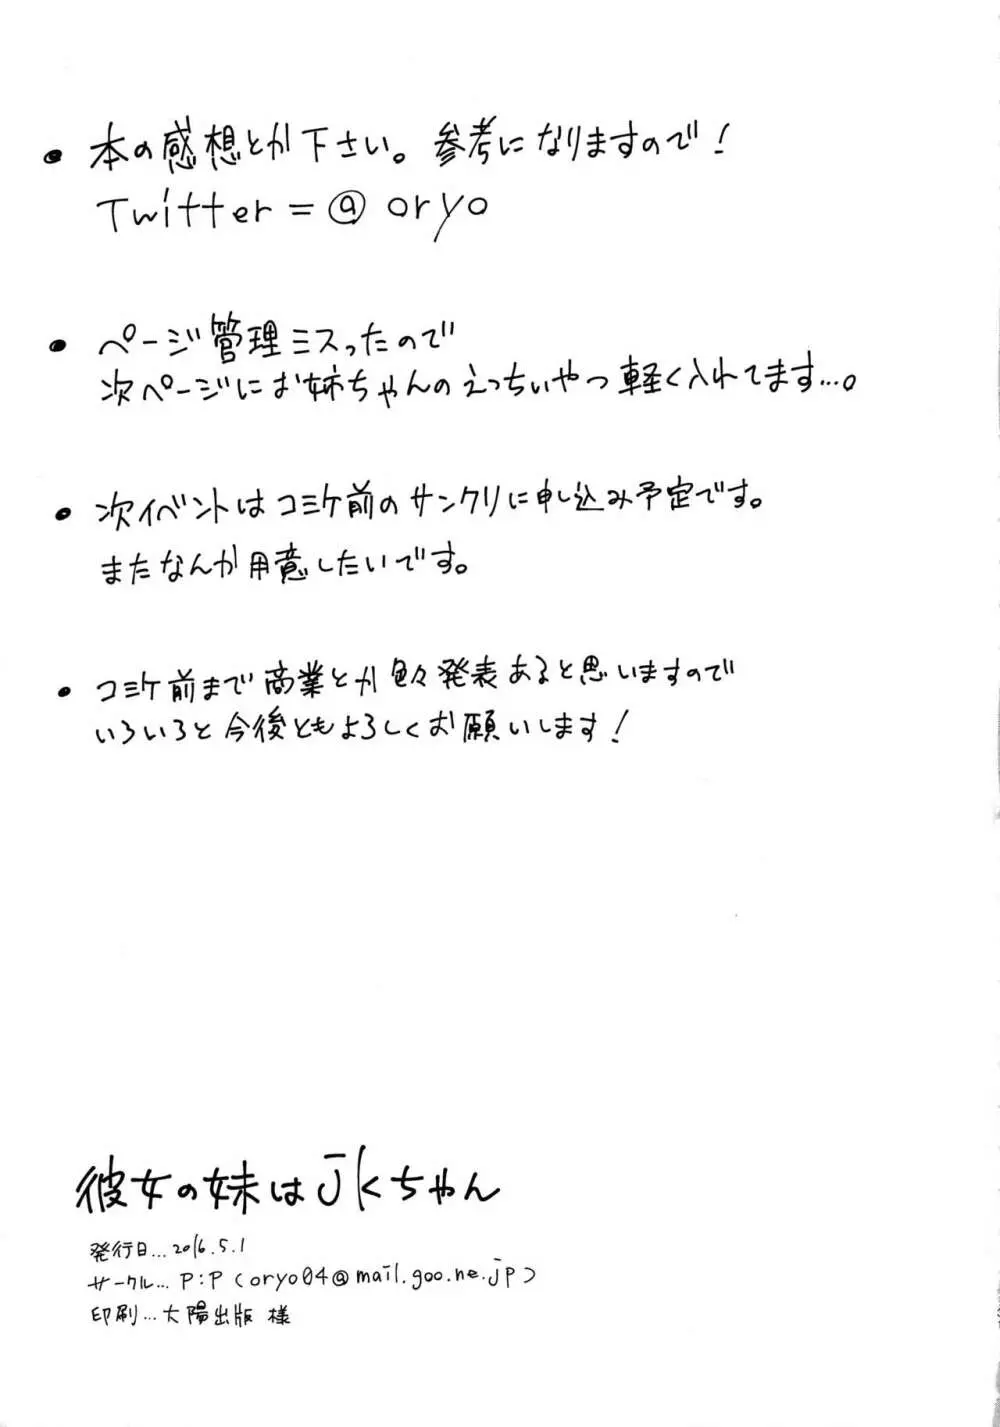 • 本の感想とか下さい。参考になりますので！
Twitter = @ oryo
• ページ管理ミスったので
次ページにお姉ちゃんのえっちいやつ軽く入れてます…。
• 次イベントはコミケ前のサンクリに申し込み予定です。
またなんか用意したいです。
• コミケ前まで商業とか色々発表あると思いますので
いろいろと今後ともよろしくお願いします！
彼女の妹はJKちゃん
発行日…2016.5.1
サークル…P:P（oryo04@mail.goo.ne.jp）
印刷…大陽出版 様